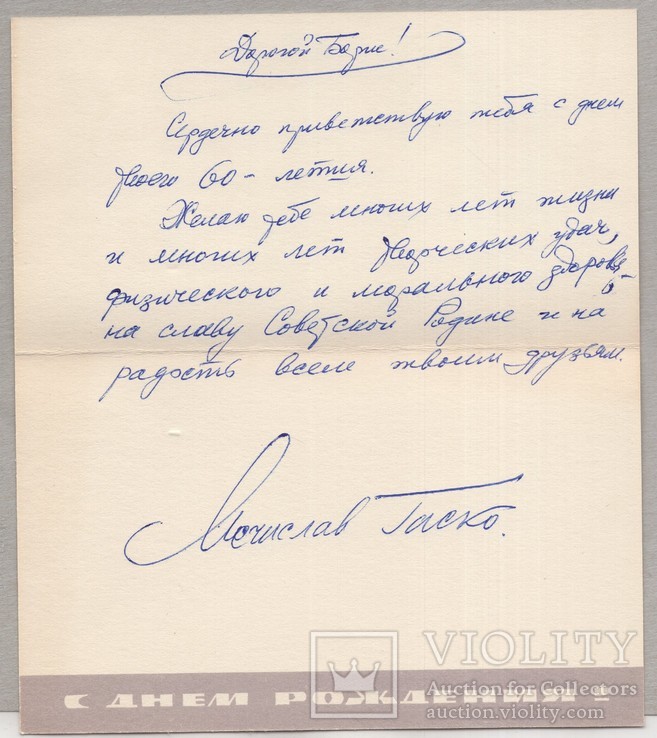 Дорогой Борис!
Сердечно приветствую тебя с днем
твоего 60-летия.
Желаю тебе многих лет жизни
и многих лет творческих удач,
физического и морального здоровья
на славу Советской Родине и на
радость всем твоим друзьям.
Мечислав Гаско.
С ДНЕМ РОЖДЕНИЯ!
VIOLITY
Auction for Collectors
auction.violity.com